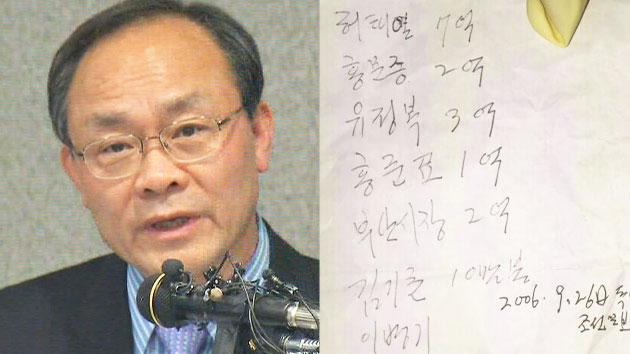 허태열 7억
홍문종 2억
유정복 3억
홍준표 1억
부산시장 2억
김기춘 10만불
2006. 9. 26日
조선일보
이병기